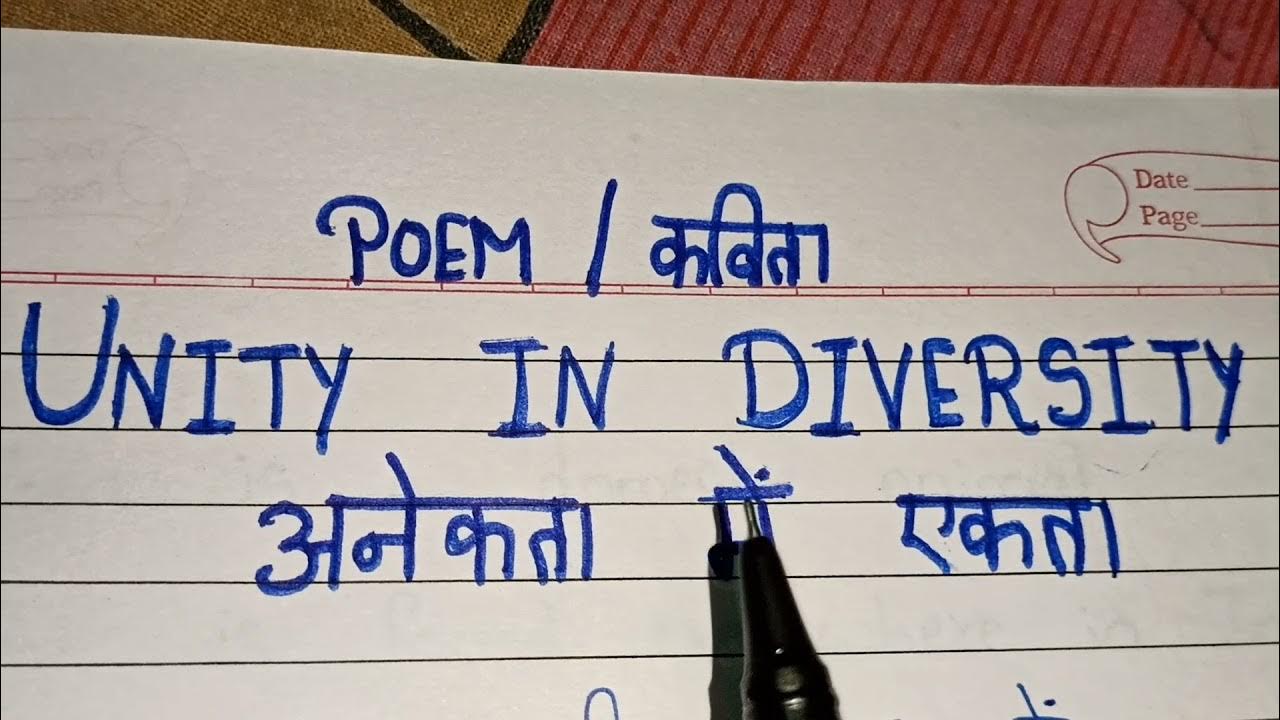 Date
Page
POEM / कविता
UNITY IN DIVERSITY
अनेकता में एकता